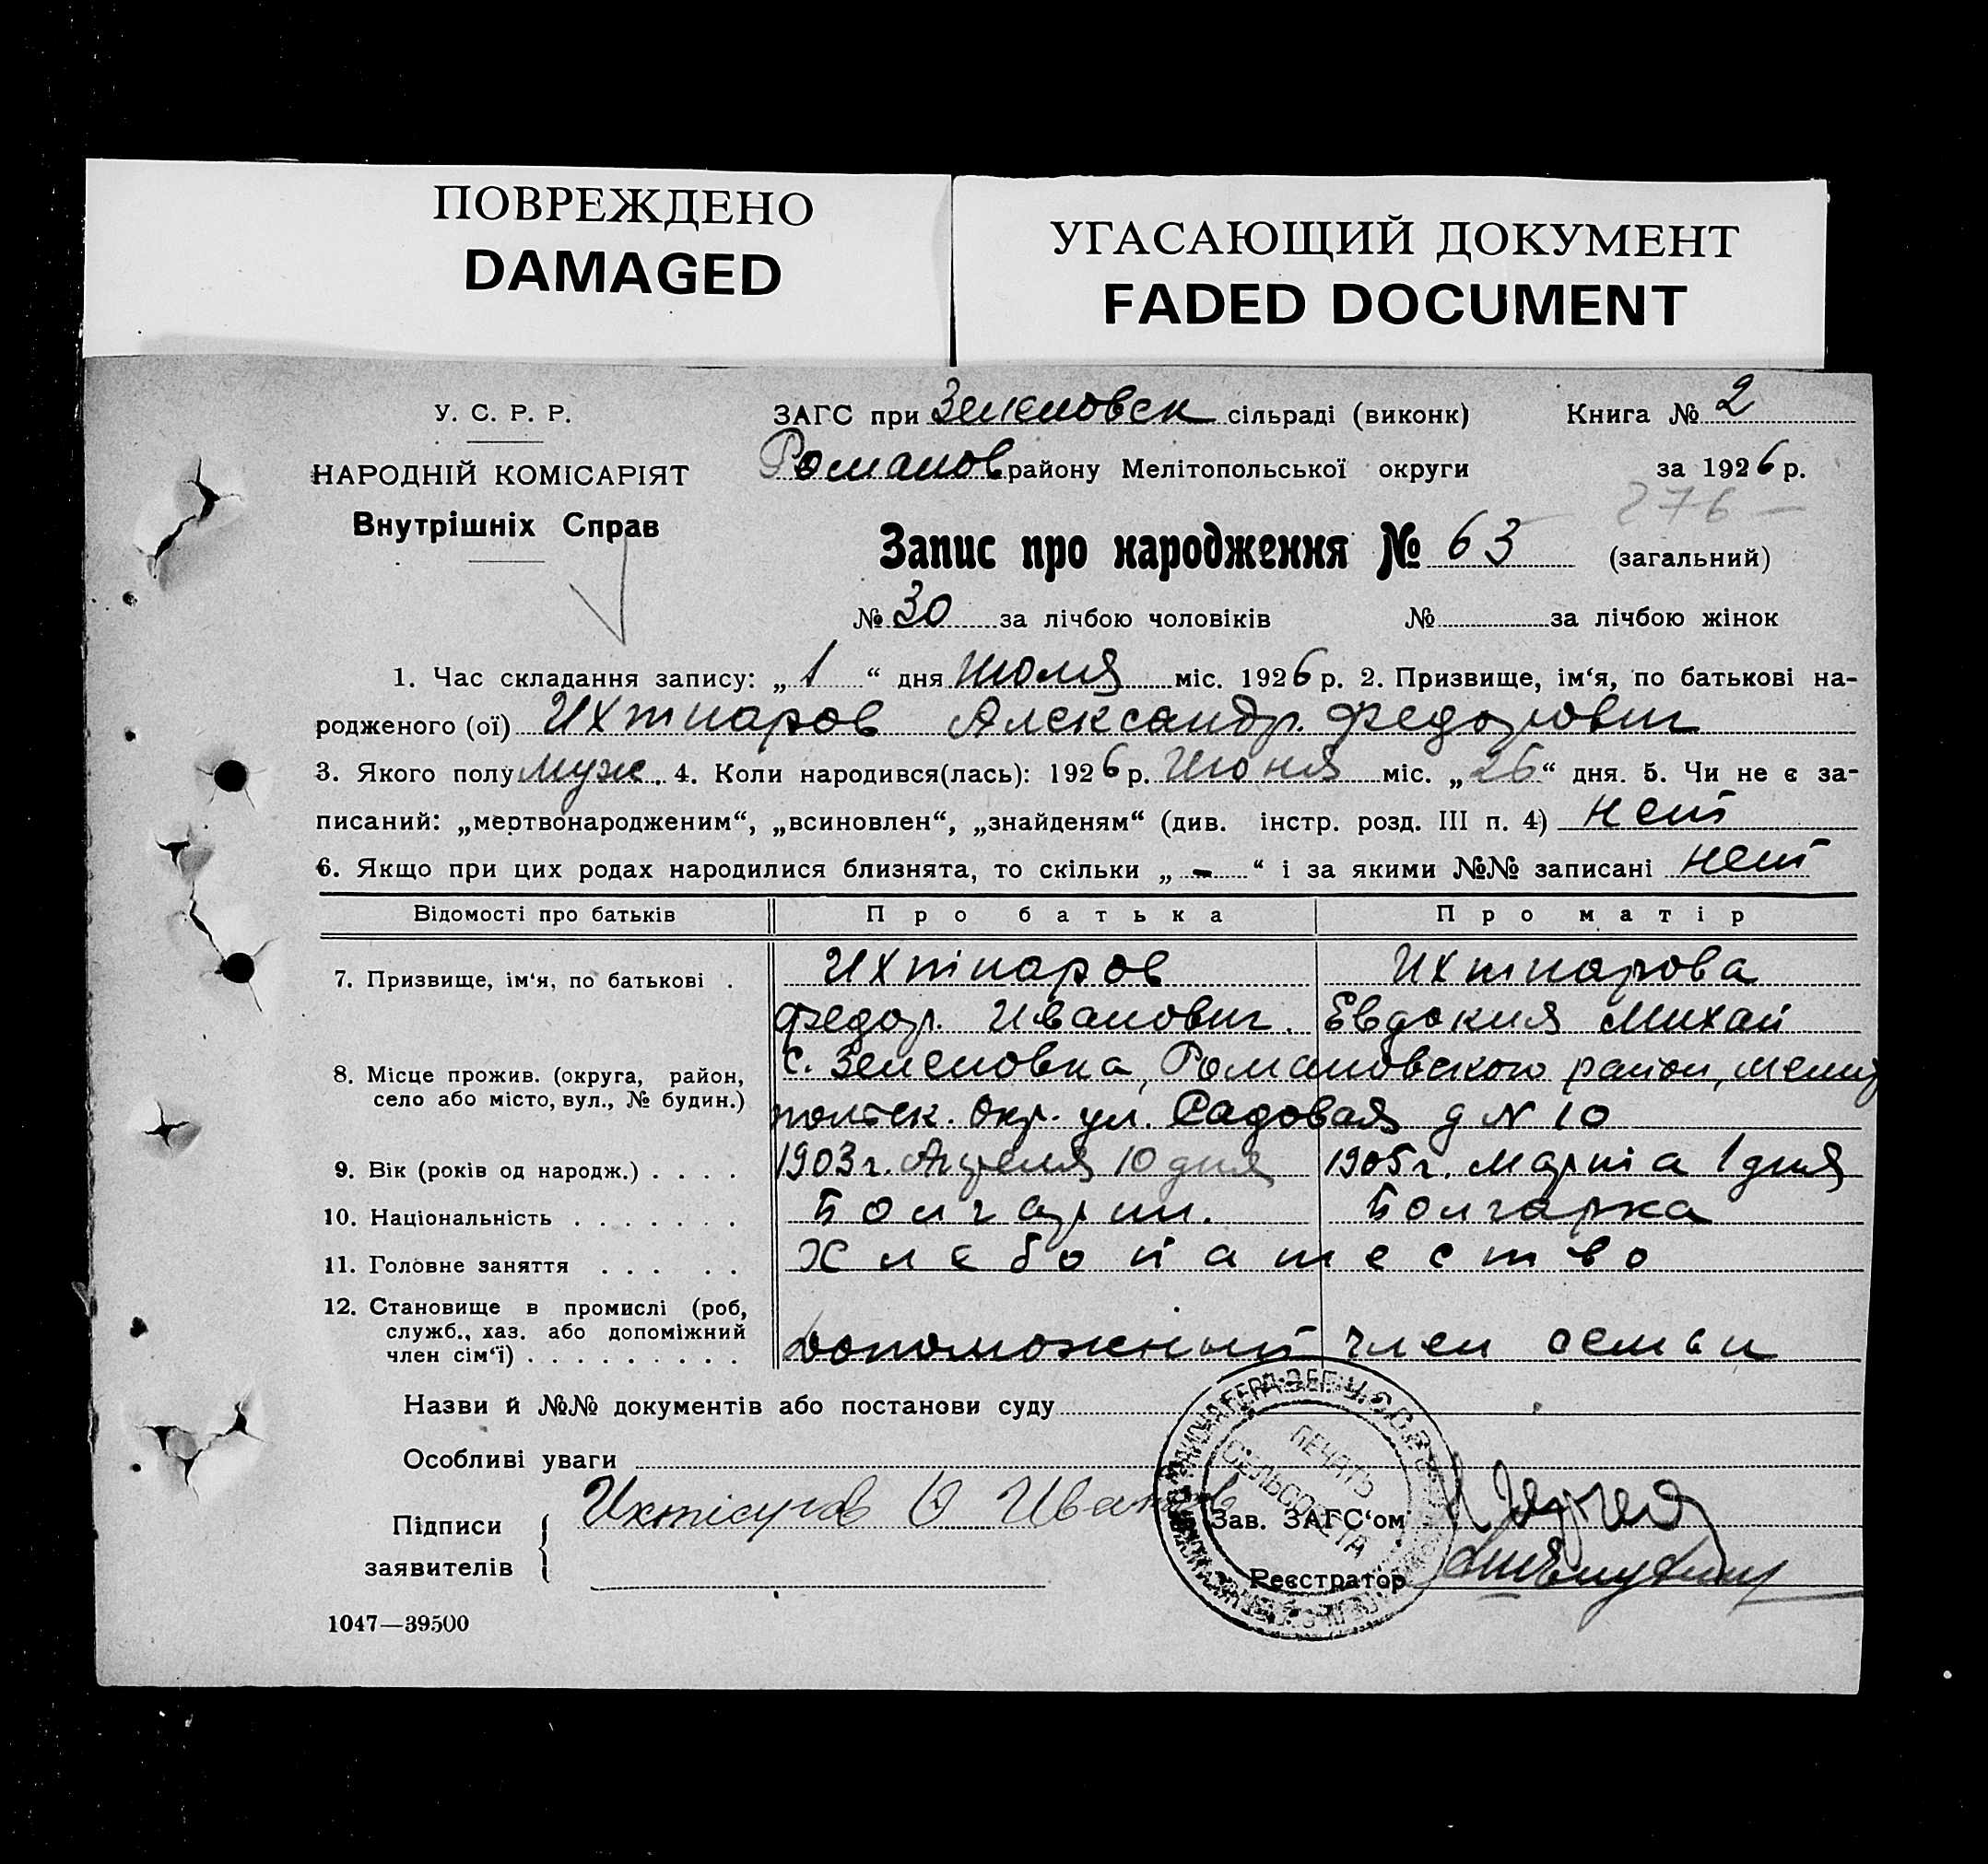 ПОВРЕЖДЕНО
DAMAGED
УГАСАЮЩИЙ ДОКУМЕНТ
FADED DOCUMENT
У. С. Р. Р.
НАРОДНІЙ КОМІСАРІЯТ
Внутрішніх Справ
ЗАГС при Зеленовск сільраді (виконк) Книга № 2
Романов району Мелітопольської округи за 1926 р.
276 —
Запис про народження № 63 (загальний)
№ 30 за лічбою чоловіків № за лічбою жінок
1. Час складання запису: „ 1 “ дня Июля міс. 1926 р. 2. Призвище, ім‘я, по батькові на-
родженого (ої) Ихтиаров Александр. Федорович
3. Якого полу муж. 4. Коли народився(лась): 1926 р. Июня міс. „ 26 “ дня. 5. Чи не є за-
писаний: „мертвонародженим“, „всиновлен“, „знайденям“ (див. інстр. розд. III п. 4) нет
6. Якщо при цих родах народилися близнята, то скільки „ - “ і за якими №№ записані нет
Відомості про батьків Про батька Про матір
7. Призвище, ім‘я, по батькові . Ихтиаров Ихтиарова
Федор. Иванович. Евдокия Михай
8. Місце прожив. (округа, район, село або місто, вул., № будин.) с. Зеленовка, Романовского район, мелит
польск. окр. ул. Садовая д N 10
9. Вік (років од народж.) . . . . 1903 г. Апреля 10 дня 1905 г. Марта 1 дня
10. Національність . . . . . . . Болгарин. Болгарка
11. Головне заняття . . . . . Хлебопашество
12. Становище в промислі (роб, служб., хаз. або допоміжний член сім‘ї) . . . . . . . . . допоможный член семьи
Назви й №№ документів або постанови суду
Особливі уваги
Підписи заявителів Ихтиаров Ф Иванов
ПЕЧАТЬ
СЕЛЬСОВЕТА
Зав. ЗАГС‘ом
Реєстратор
1047—39500